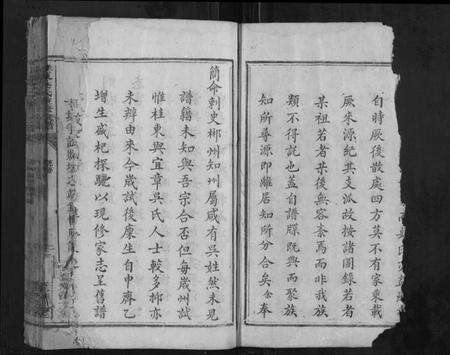 自時厥後散處四方莫不有家乘載
厥来源紀其支派故按諸圖録若者
某祖若者某後無容紊焉而非我族
類不得託也盖自譜牒既興而聚族
知所尋源即離居知所分合矣余奉
簡命刺史郴州知州屬咸有吳姓然未見
譜籍未知與吾宗合否但每歳州試
惟桂東與宜章吳氏人士較多郴亦
未辦由来今歳試後廩生自申齊乙
增生盛杞探驪以現修家志呈舊譜